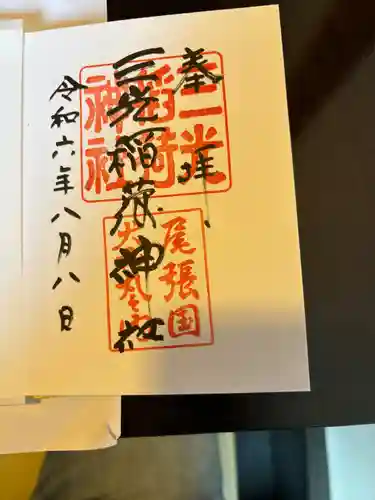 奉拝
三光稲荷神社
令和六年八月八日
三光稲荷神社
尾張国
犬山